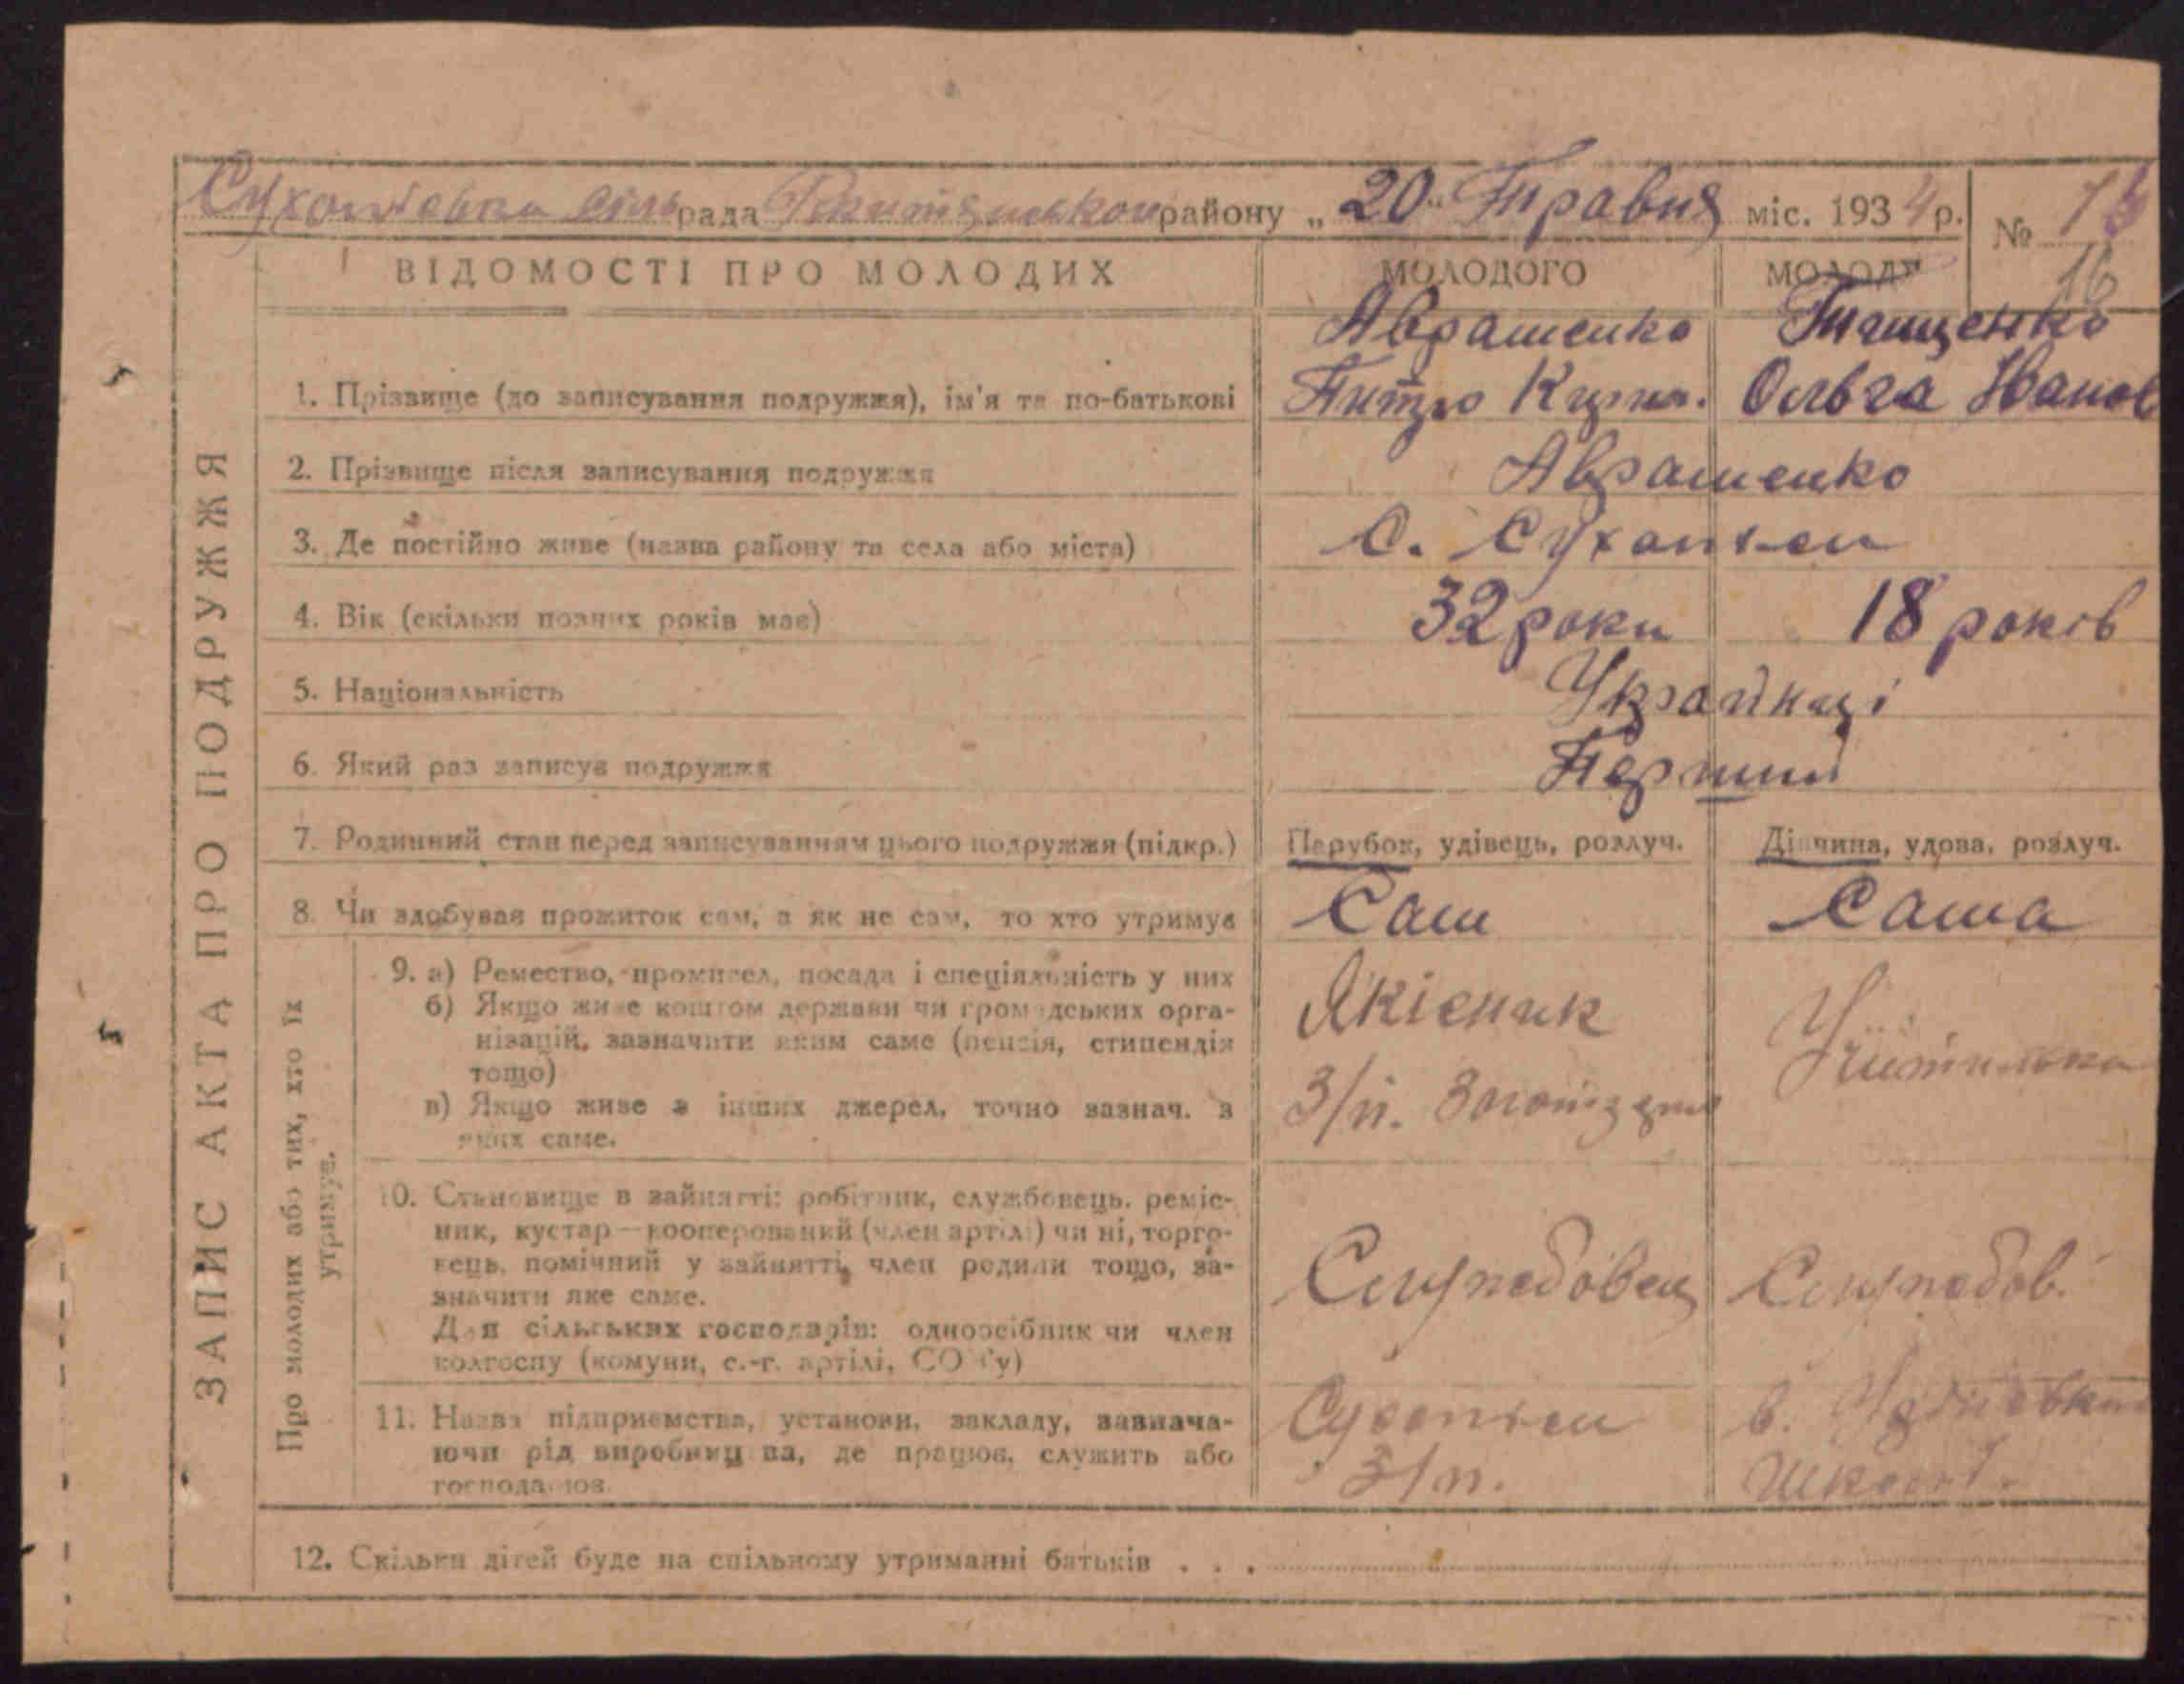 рада району „20“ Травня міс. 1934 р. № 15
16
ВІДОМОСТІ ПРО МОЛОДИХ МОЛОДОГО МОЛОДУ
Аврашенко Тищенко
1. Прізвище (до записування подружжя), ім'я та по-батькові Ольга Иванов
2. Прізвище після записування подружжя Аврашенко
3. Де постійно живе (назва району та села або міста) с.
4. Вік (скільки повних років має) 32 роки 18 років
5. Національність Українці
6. Який раз записує подружжя Перший
7. Родинний стан перед записуванням цього подружжя (підкр.) Парубок, удівець, розлуч. Дівчина, удова, розлуч.
8. Чи здобував прожиток сам, а як не сам, то хто утримує Сам Сама
9. а) Ремество, промисел, посада і спеціяльність у них
б) Якщо живе коштом держави чи громадських орга-
нізацій, зазначити яким саме (пенсія, стипендія
тощо)
в) Якщо живе з інших джерел, точно зазнач. з
яких саме.
Якісник
З/п.
Учителька
10. Становище в зайнятті: робітник, службовець, реміс-
ник, кустар — кооперований (член артілі) чи ні, торго-
вець, помічний у зайнятті, член родини тощо, за-
значити яке саме.
Для сільських господарів: одноосібник чи член
колгоспу (комуни, с.-г. артілі, СОЗ'у)
Службовец Службов.
11. Назва підприємства, установи, закладу, зазнача-
ючи рід виробництва, де працює, служить або
господарює.
З/п.
в.
12. Скільки дітей буде на спільному утриманні батьків . . .
ЗАПИС АКТА ПРО ПОДРУЖЖЯ
Про молодих або тих, хто їх
утримує.